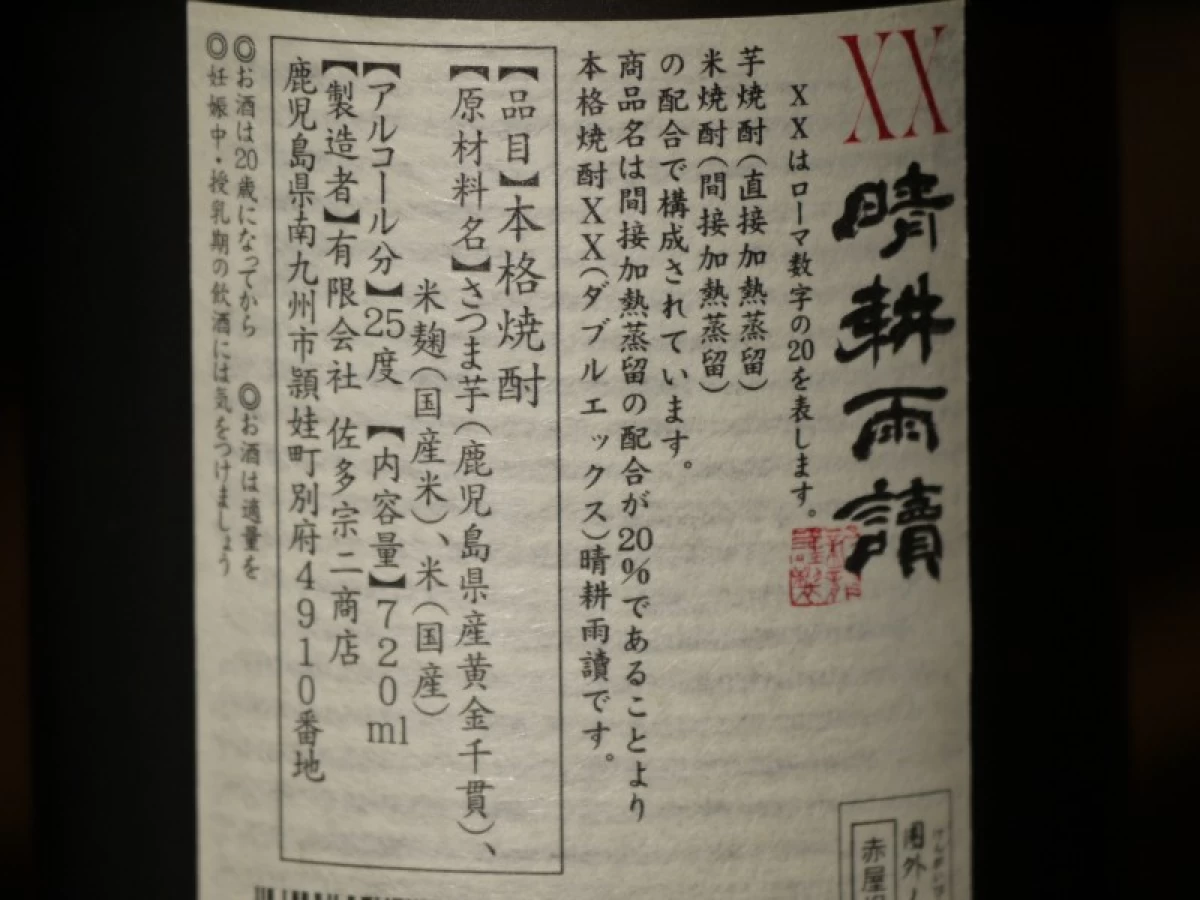 XX 晴耕雨讀
XXはローマ数字の20を表します。
芋焼酎(直接加熱蒸留)
米焼酎(間接加熱蒸留)
の配合で構成されています。
商品名は間接加熱蒸留の配合が20%であることより
本格焼酎XX(ダブルエックス)晴耕雨讀です。
【品目】本格焼酎
【原材料名】さつま芋(鹿児島県産黄金千貫)、
米麹(国産米)、米(国産)
【アルコール分】25度 【内容量】720ml
【製造者】有限会社 佐多宗二商店
鹿児島県南九州市頴娃町別府4910番地
◎お酒は20歳になってから ◎お酒は適量を
◎妊娠中・授乳期の飲酒には気をつけましょう
圏外
赤屋